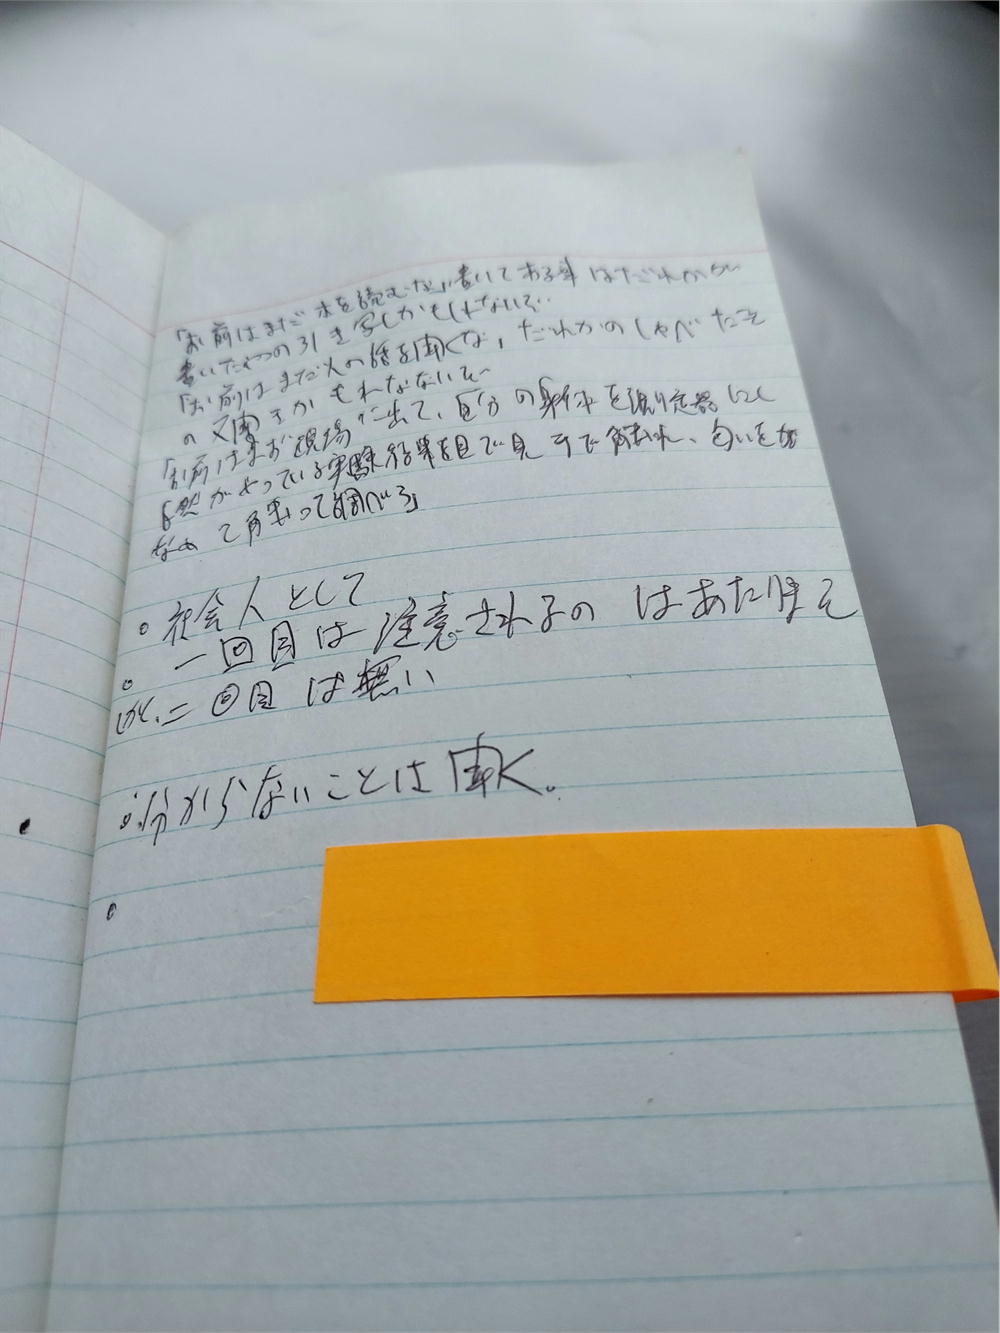 「お前はまだ本を読むな」書いてある事はだれかが
書いたやつの引き写しかもしれないぞ
「お前はまだ人の話を聞くな、だれかのしゃべたこと
の又聞きかもしれなないぞ
「お前はまず現場に出て、自分の身体を測定器にして
自然がやっている実験結果を目で見 手で触れ、匂いを
なめ て触って調べろ」
。社会人として
。一回目は注意されるのはあたりまえ
が、二回目は無い
。分からないことは聞く。
。